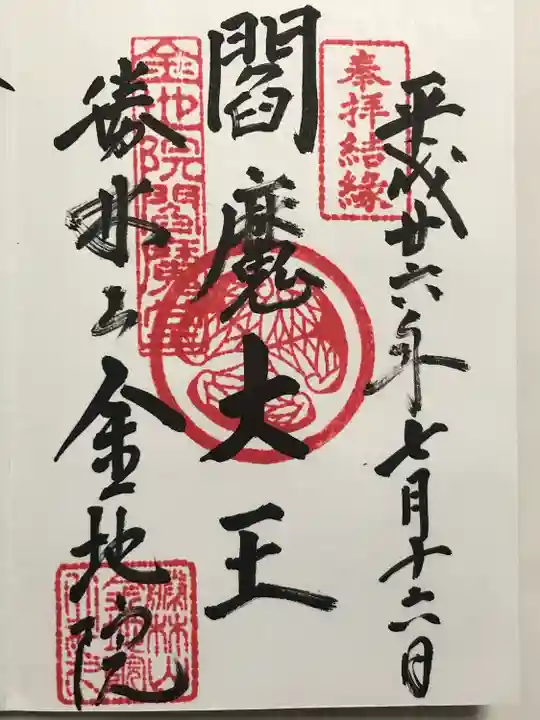 奉拝結縁
平成廿六年七月十六日
閻魔大王
金地院閻魔堂
勝林山金地院
勝林山
金地院